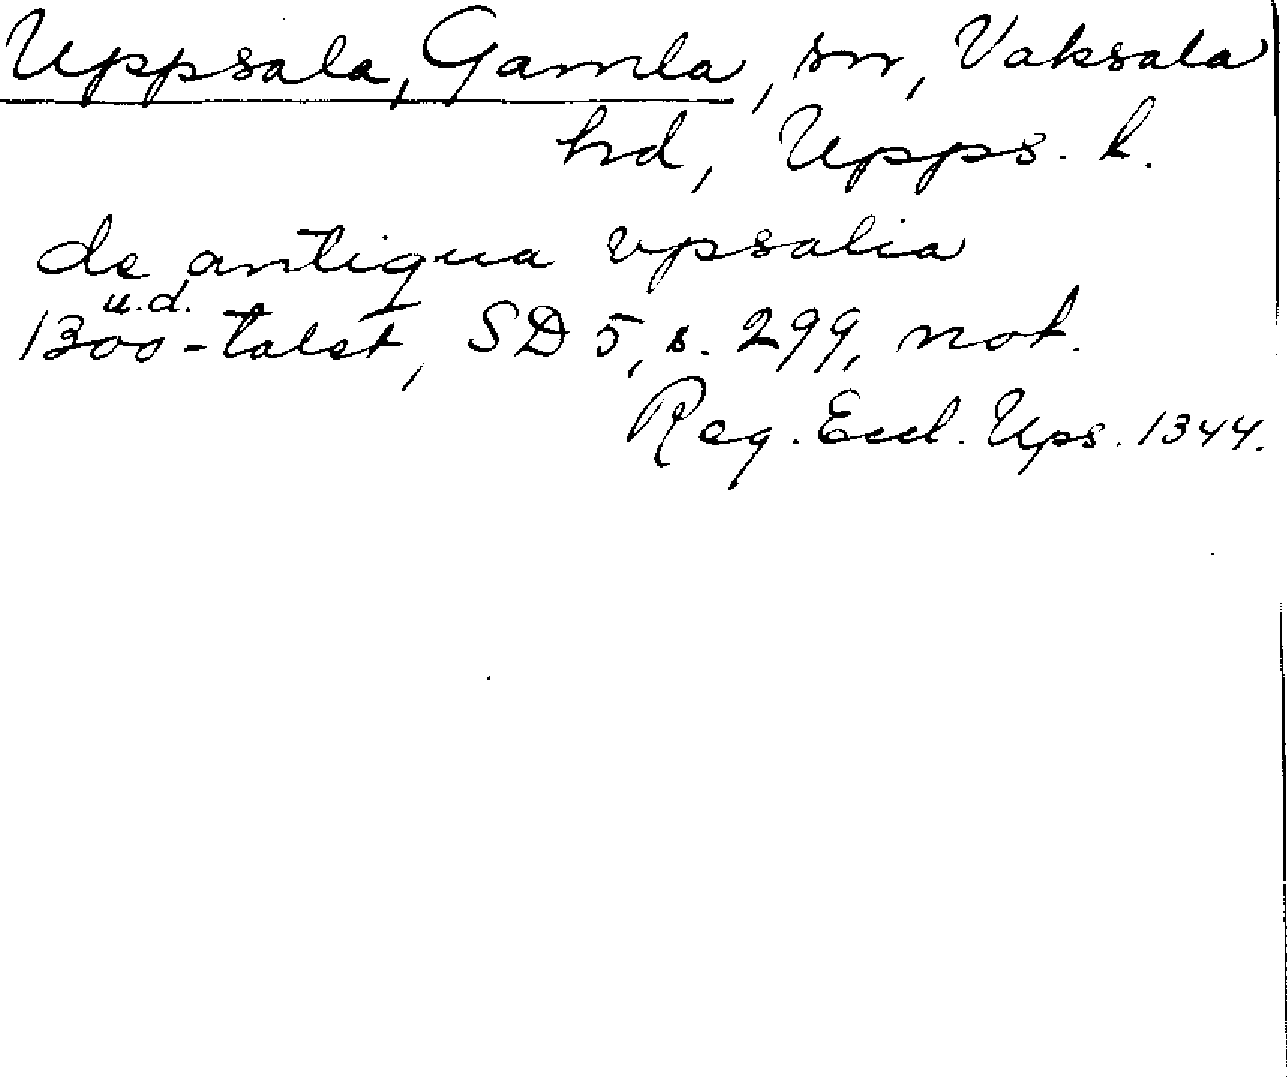 Uppsala, Gamla, sn, Vaksala
hd, Upps. l.
de antiqua vpsalia
u.d.
1300-talet, SD 5, s. 299, not.
Reg. Eccl. Ups. 1344.